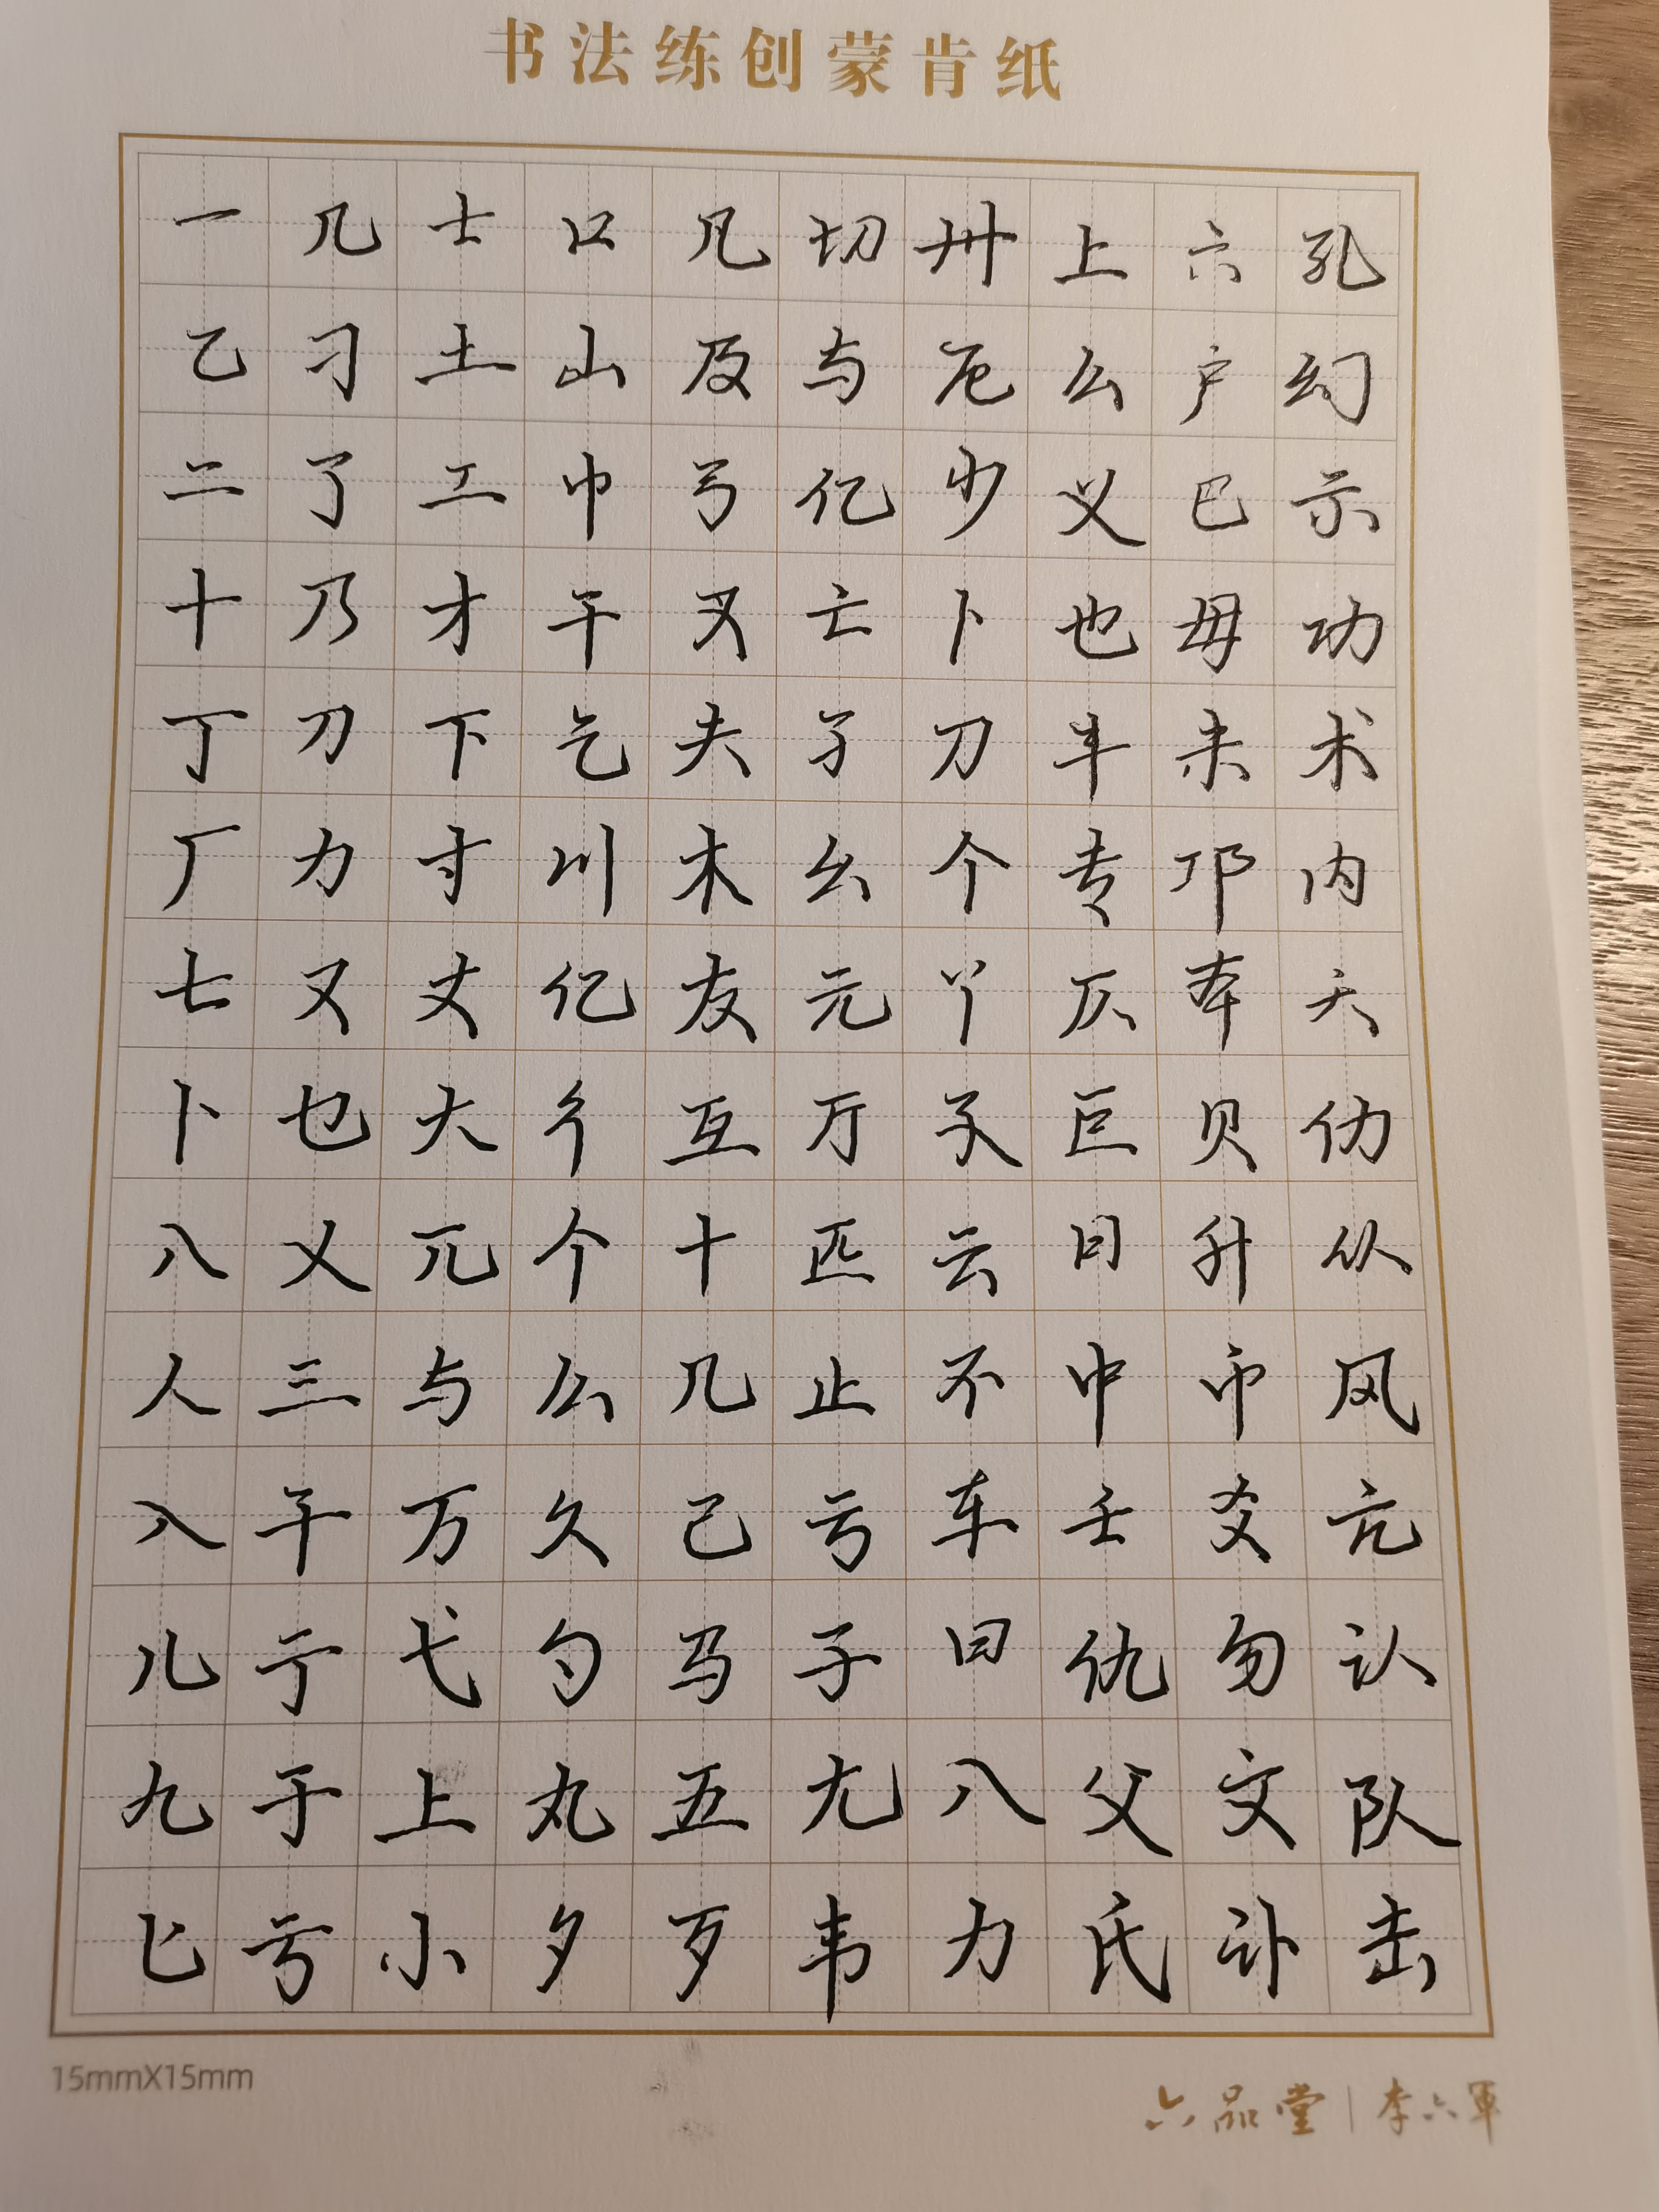 书法练创蒙肯纸
一几士口凡切卅上六孔
乙刁土山及与厄么户幻
二了工巾弓亿少义巳示
十乃才干叉亡卜也毋功
丁刀下乞夫孑刀丰未术
厂力寸川木幺个专邛内
七又丈亿友元丫仄本天
卜也大彳互厅孓巨贝仂
八乂兀个十匹云日升从
人三与么几止不中币风
入干万久己亏车壬爻亢
儿亍弋勺马子曰仇勿认
九于上丸五尢八父文队
匕亏小夕歹韦力氏讣击
15mmX15mm
六品堂 | 李六軍